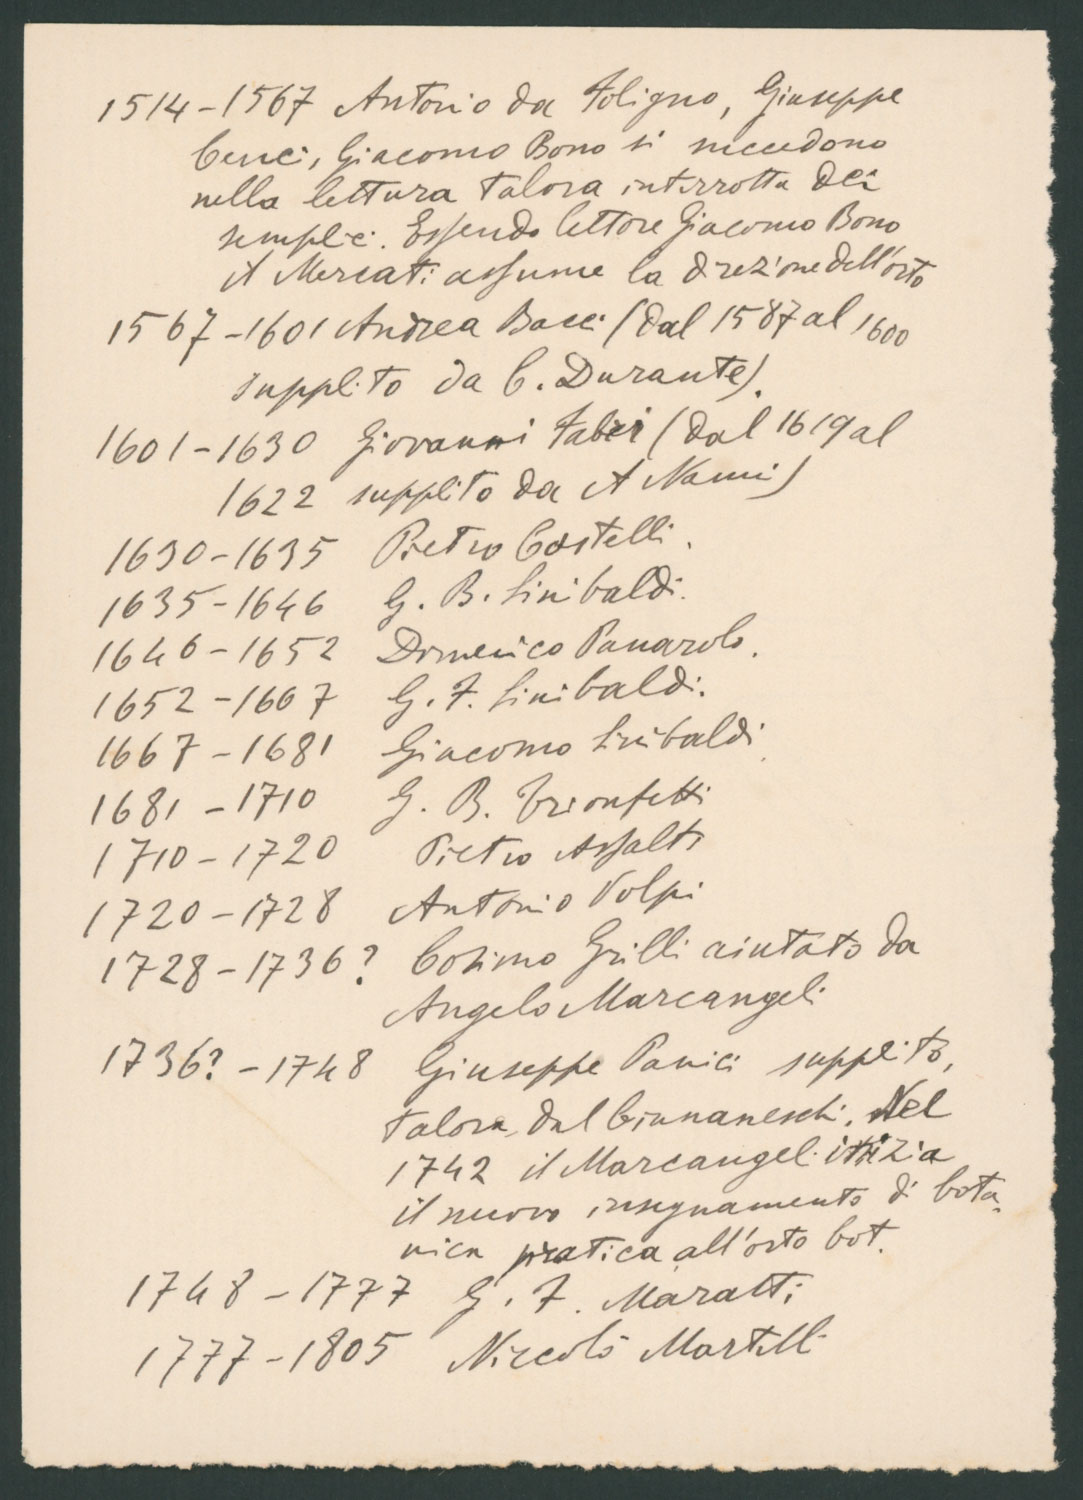 1514-1567 Antonio da Foligno, Giuseppe
Cenci, Giacomo Bono si succedono
nella lettura talora interrotta dei
semplici. Essendo lettore Giacomo Bono
il Mercati assume la direzione dell'orto
1567-1601 Andrea Bacci (dal 1587 al 1600
supplito da C. Durante).
1601-1630 Giovanni Faber (dal 1619 al
1622 supplito da A Nanni)
1630-1635 Pietro Castelli.
1635-1646 G. B. Sinibaldi.
1646-1652 Domenico Panarolo.
1652-1667 G. F. Sinibaldi.
1667-1681 Giacomo Sinibaldi.
1681-1710 G. B. Trionfetti
1710-1720 Pietro Assalti
1720-1728 Antonio Volpi
1728-1736? Cosimo Grilli aiutato da
Angelo Marcangeli
1736?-1748 Giuseppe Panici supplito,
talora, dal. Nel
1742 il Marcangeli inizia
il nuovo insegnamento di bota-
nica pratica all'orto bot.
1748-1777 G. F. Maratti
1777-1805 Niccolò Martelli